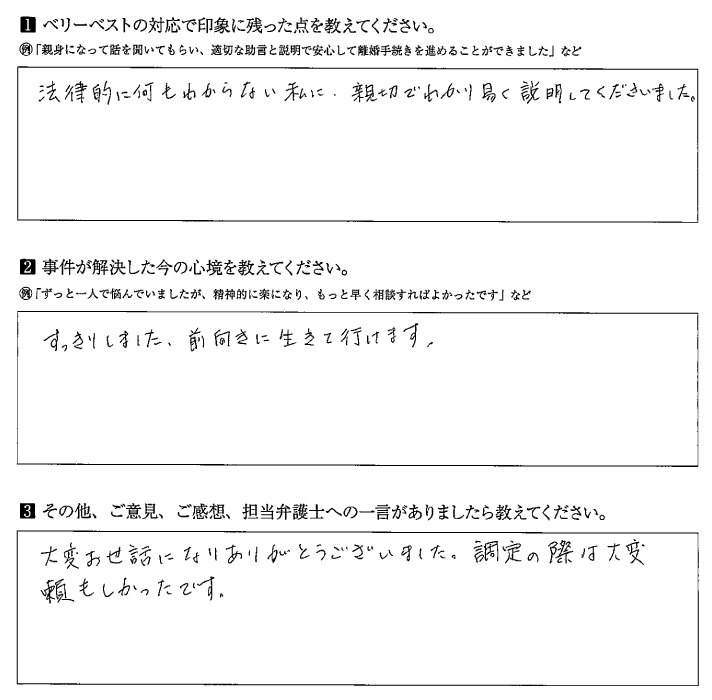 1 ベリーベストの対応で印象に残った点を教えてください。
例「親身になって話を聞いてもらい、適切な助言と説明で安心して離婚手続きを進めることができました」など
法律的に何もわからない私に、親切でわかり易く説明してくださいました。
2 事件が解決した今の心境を教えてください。
例「ずっと一人で悩んでいましたが、精神的に楽になり、もっと早く相談すればよかったです」など
すっきりしました、前向きに生きて行けます。
3 その他、ご意見、ご感想、担当弁護士への一言がありましたら教えてください。
大変お世話になりありがとうございました。調定の際は大変
頼もしかったです。